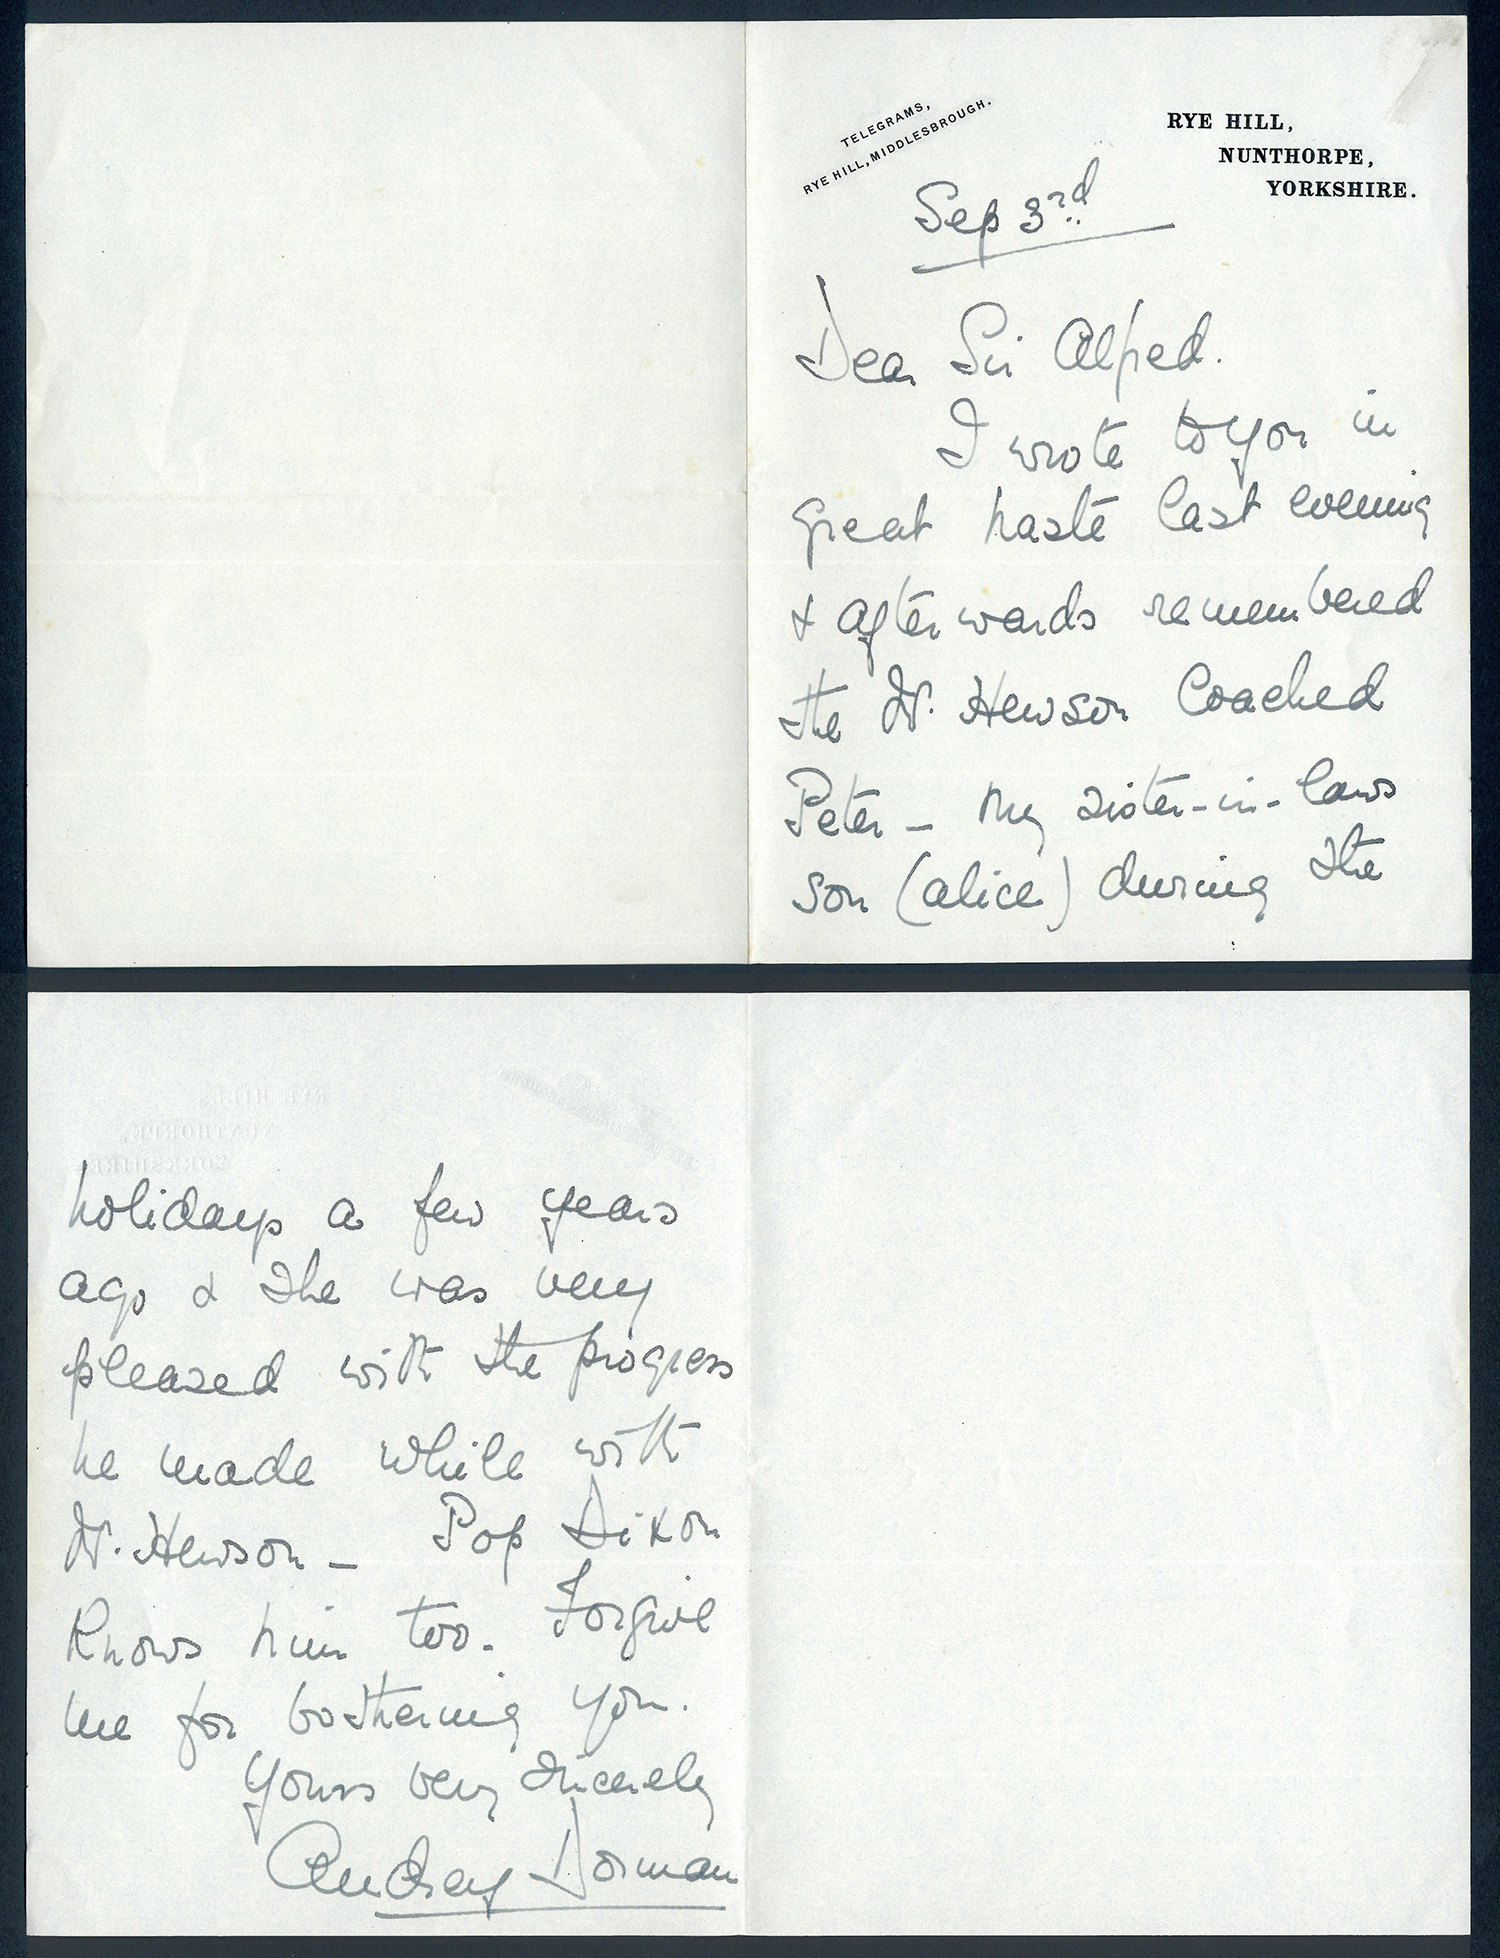 TELEGRAMS,
RYE HILL, MIDDLESBROUGH.
RYE HILL,
NUNTHORPE,
YORKSHIRE.
Sep 3rd
Dear Sir Alfred.
I wrote to you in
great haste last evening
& afterwards remembered
the W. Hewson Coached
Peter – my sister-in-laws
son (alice) during the
holidays a few years
ago & she was very
pleased with the progress
he made while with
W. Hewson – Pop Dixon
Knows him too. Forgive
me for bothering you.
Yours very sincerely
Audrey Dorman